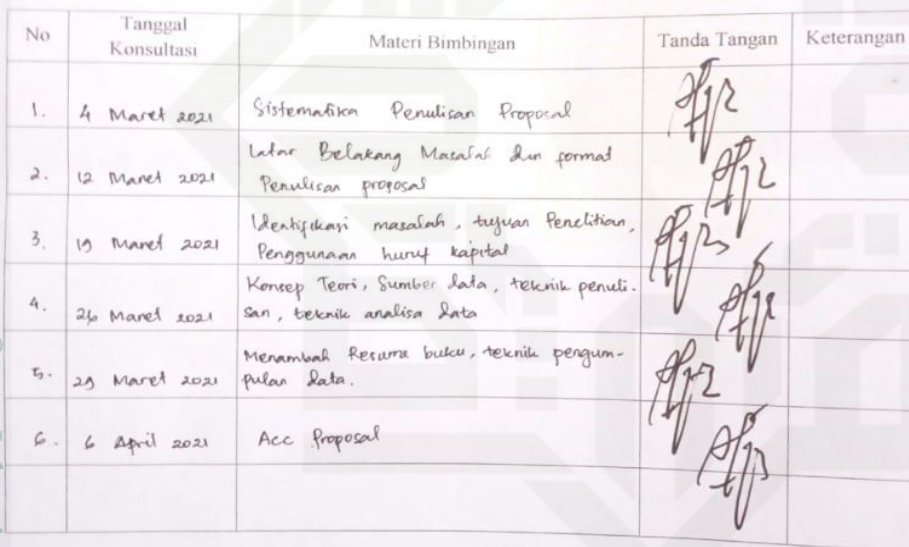 No Tanggal Konsultasi Materi Bimbingan Tanda Tangan Keterangan
1. 4 Maret 2021 Sistematika Penulisan Proposal
2. 12 Maret 2021 Latar Belakang Masalah dan format
Penulisan proposal
3. 19 Maret 2021 Identifikasi masalah, tujuan Penelitian,
Penggunaan huruf kapital
4. 26 Maret 2021 Konsep Teori, Sumber data, teknik penuli-
san, teknik analisa data
5. 29 Maret 2021 Menambah Resume buku, teknik pengum-
pulan data.
6. 6 April 2021 Acc Proposal